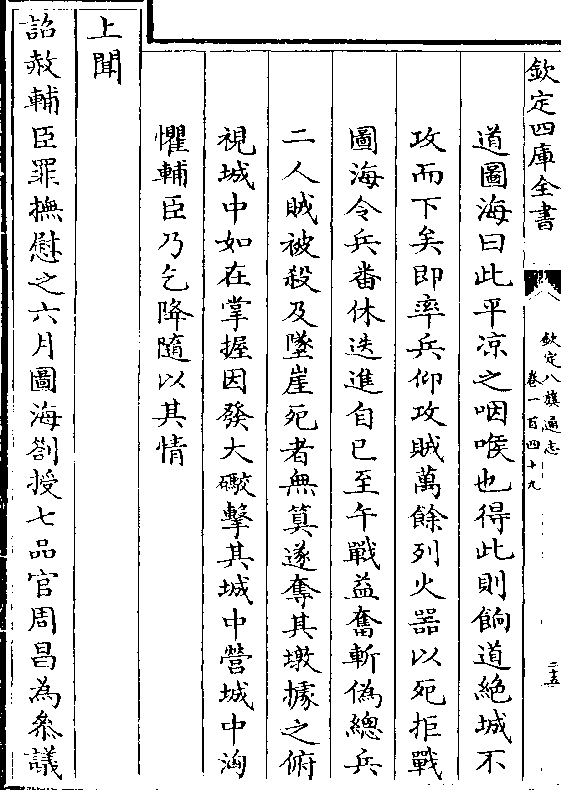 欽定四庫全書
欽定八旗通志
卷一百四十九
二十五
道圖海曰此平凉之咽喉也得此則餉道絶城不
攻而下矣即率兵仰攻賊萬餘列火器以死拒戰
圖海令兵番休迭進自已至午戰益奮斬偽總兵
二人賊被殺及墜崖死者無算遂奪其墩據之俯
視城中如在掌握因發大礮擊其城中營城中洶
懼輔臣乃乞降隨以其情
上聞
詔赦輔臣罪撫慰之六月圖海劄授七品官周昌為叅議